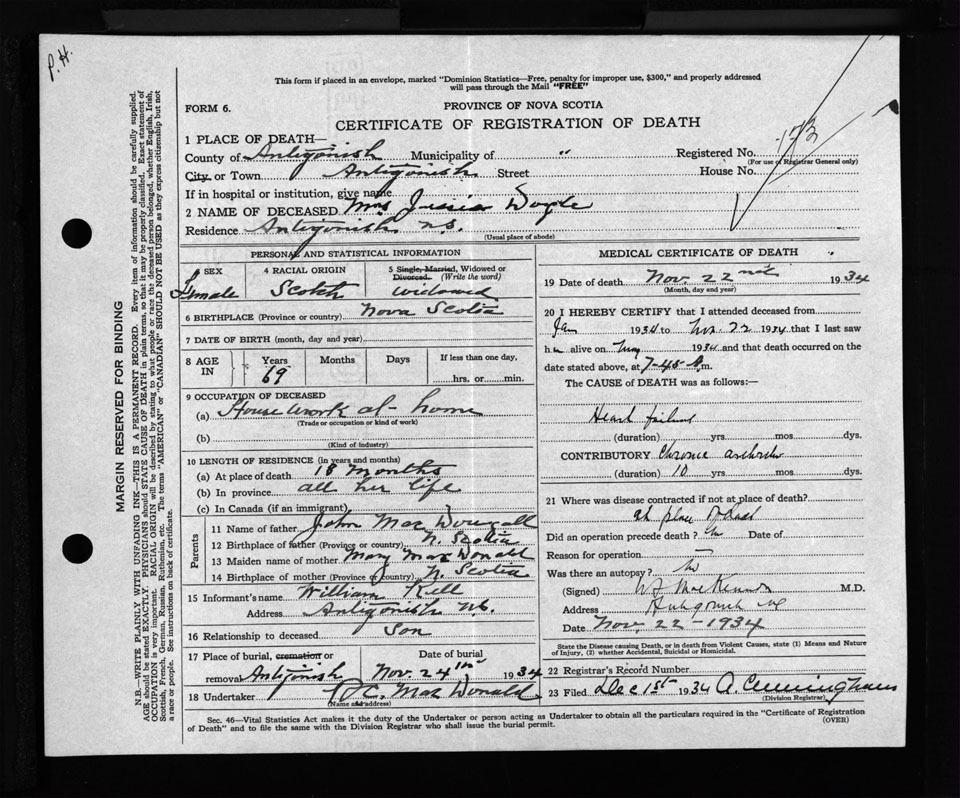 P. H.
This form if placed in an envelope, marked "Dominion Statistics—Free, penalty for improper use, $300," and properly addressed
will pass through the Mail "FREE"
FORM 6.
PROVINCE OF NOVA SCOTIA
CERTIFICATE OF REGISTRATION OF DEATH
173
1 PLACE OF DEATH—
County of Antigonish Municipality of " Registered No.
(For use of Registrar General only)
City or Town Antigonish Street House No.
If in hospital or institution, give name
2 NAME OF DECEASED Mrs Doyle
Residence Antigonish N.S.
(Usual place of abode)
PERSONAL AND STATISTICAL INFORMATION
3 SEX 4 RACIAL ORIGIN 5 Single, Married, Widowed or
Divorced. (Write the word)
Female Scotch Widowed
6 BIRTHPLACE (Province or country) Nova Scotia
7 DATE OF BIRTH (month, day and year)
8 AGE IN Years Months Days If less than one day,
69 hrs. or min.
9 OCCUPATION OF DECEASED
(a) House work at home
(Trade or occupation or kind of work)
(b)
(Kind of industry)
10 LENGTH OF RESIDENCE (in years and months)
(a) At place of death 18 Months
(b) In province all her life
(c) In Canada (if an immigrant)
Parents
11 Name of father John MacDougall
12 Birthplace of father (Province or country) N. Scotia
13 Maiden name of mother Mary MacDonald
14 Birthplace of mother (Province or country) N. Scotia
15 Informant's name William Kell
Address Antigonish N.S.
16 Relationship to deceased Son
17 Place of burial, cremation or Date of burial
removal Antigonish Nov. 24 th 1934
18 Undertaker C. MacDonald
(Name and address)
MEDICAL CERTIFICATE OF DEATH
19 Date of death Nov. 22 nd 1934
(Month, day and year)
20 I HEREBY CERTIFY that I attended deceased from
Jan 1934 to Nov. 22 1934 that I last saw
her alive on 1934 and that death occurred on the
date stated above, at 7-45 m.
The CAUSE of DEATH was as follows:—
Heart failure
(duration) yrs. mos. dys.
CONTRIBUTORY Chronic arthritis
(duration) 10 yrs. mos. dys.
21 Where was disease contracted if not at place of death?
at place of death
Did an operation precede death? No Date of
Reason for operation —
Was there an autopsy? No
(Signed) MacKinnon M.D.
Address Antigonish N.S.
Date Nov. 22-1934
State the Disease causing Death, or in death from Violent Causes, state (1) Means and Nature
of Injury, (2) whether Accidental, Suicidal or Homicidal.
22 Registrar's Record Number
23 Filed Dec 1st 1934 A. Cunningham
(Division Registrar)
Sec. 46—Vital Statistics Act makes it the duty of the Undertaker or person acting as Undertaker to obtain all the particulars required in the "Certificate of Registration
of Death" and to file the same with the Division Registrar who shall issue the burial permit. (OVER)
MARGIN RESERVED FOR BINDING
N.B.—WRITE PLAINLY WITH UNFADING INK—THIS IS A PERMANENT RECORD. Every item of information should be carefully supplied.
AGE should be stated EXACTLY. PHYSICIANS should STATE CAUSE OF DEATH in plain terms, so that it may be properly classified. Exact statement of
OCCUPATION is very important. RACIAL ORIGIN will be described by stating to what people or race the deceased person belonged, whether English, Irish,
Scottish, French, German, Russian, Ruthenian, etc. The terms "AMERICAN" or "CANADIAN" SHOULD NOT BE USED as they express citizenship but not
a race or people. See instructions on back of certificate.